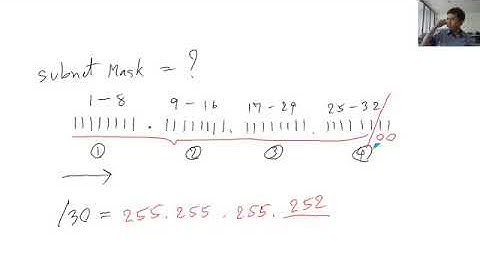 subnet Mask = ?
1 - 8 9 - 16 17 - 24 25 - 32
11111111 . 11111111 . 11111111 . 11111111
00
① ② ③ ④
/30 = 255.255.255.252